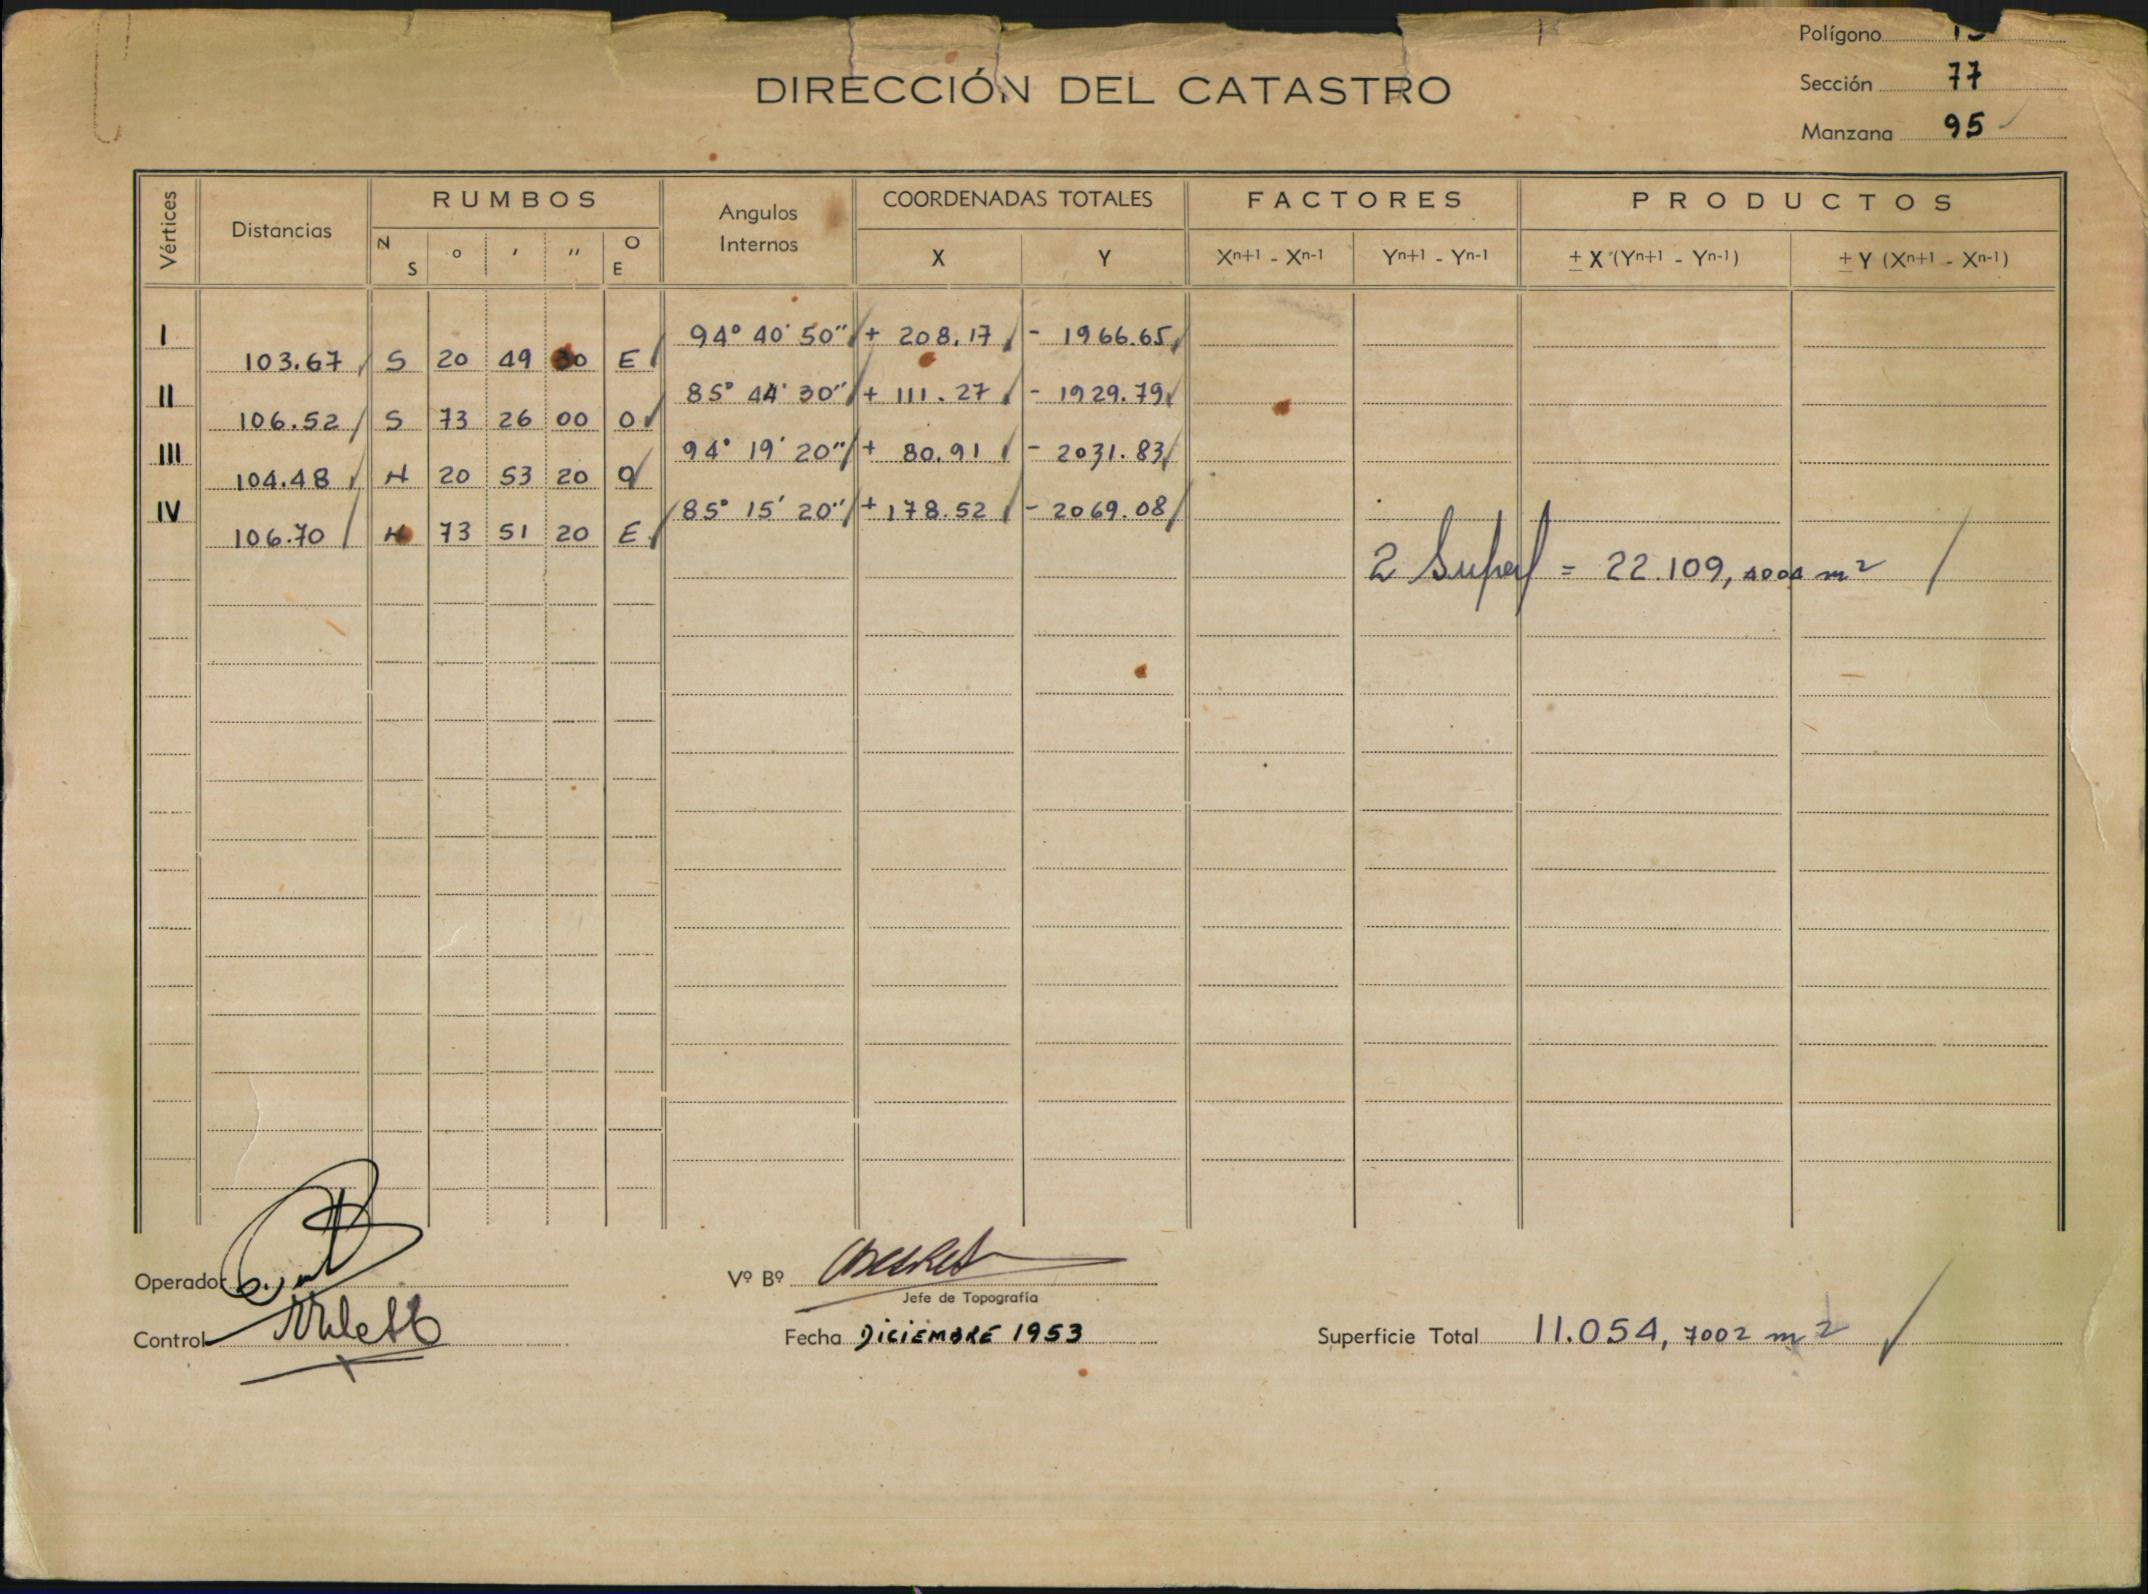 Polígono
DIRECCIÓN DEL CATASTRO
Sección 77
Manzana 95
Vértices Distancias RUMBOS Angulos Internos COORDENADAS TOTALES FACTORES PRODUCTOS
N S ° ' '' O E X Y Xn+1 - Xn-1 Yn+1 - Yn-1 ± X (Yn+1 - Yn-1) ± Y (Xn+1 - Xn-1)
I 94° 40' 50" + 208.17 - 1966.65
103.67 S 20 49 30 E
II 85° 44' 30" + 111.27 - 1929.79
106.52 S 73 26 00 O
III 94° 19' 20" + 80.91 - 2031.83
104.48 N 20 53 20 O
IV 85° 15' 20" + 178.52 - 2069.08
106.70 N 73 51 20 E
2 Superf = 22.109,4004 m²
Operador
Vº Bº
Jefe de Topografía
Control
Fecha DICIEMBRE 1953
Superficie Total 11.054,7002 m²